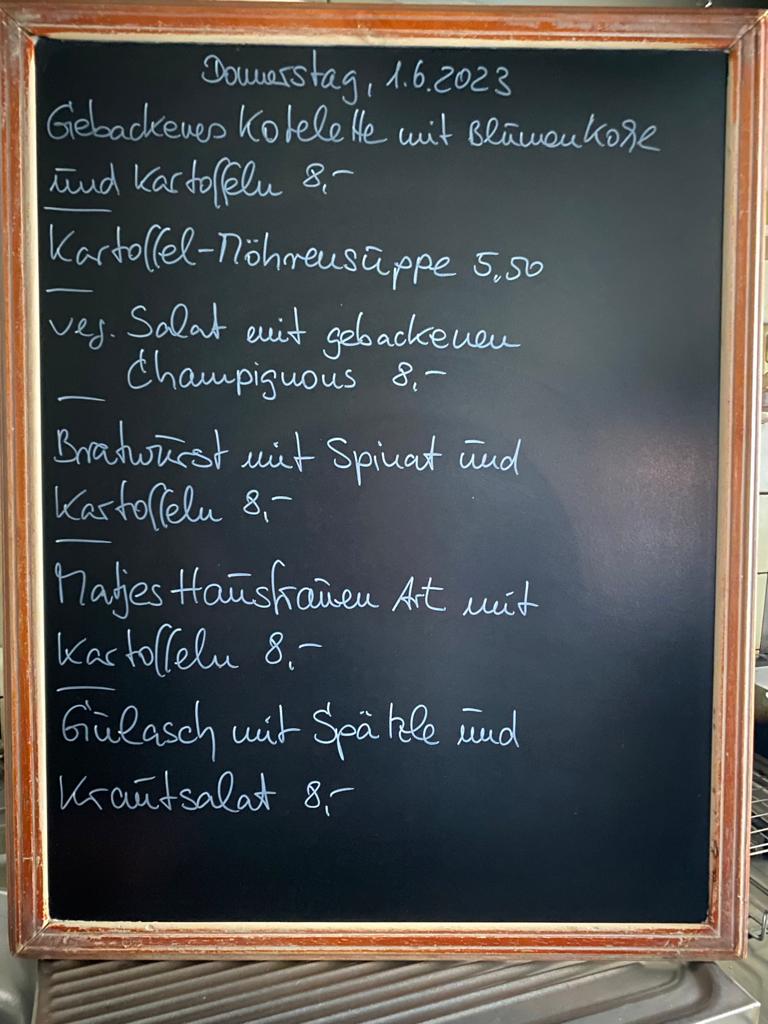 Donnerstag, 1.6.2023
Gebackenes Kotelette mit Blumenkohl
und Kartoffeln 8,-
Kartoffel-Möhrensuppe 5,50
veg. Salat mit gebackenen
Champignons 8,-
Bratwurst mit Spinat und
Kartoffeln 8,-
Matjes Hausfrauen Art mit
Kartoffeln 8,-
Gulasch mit Spätzle und
Krautsalat 8,-